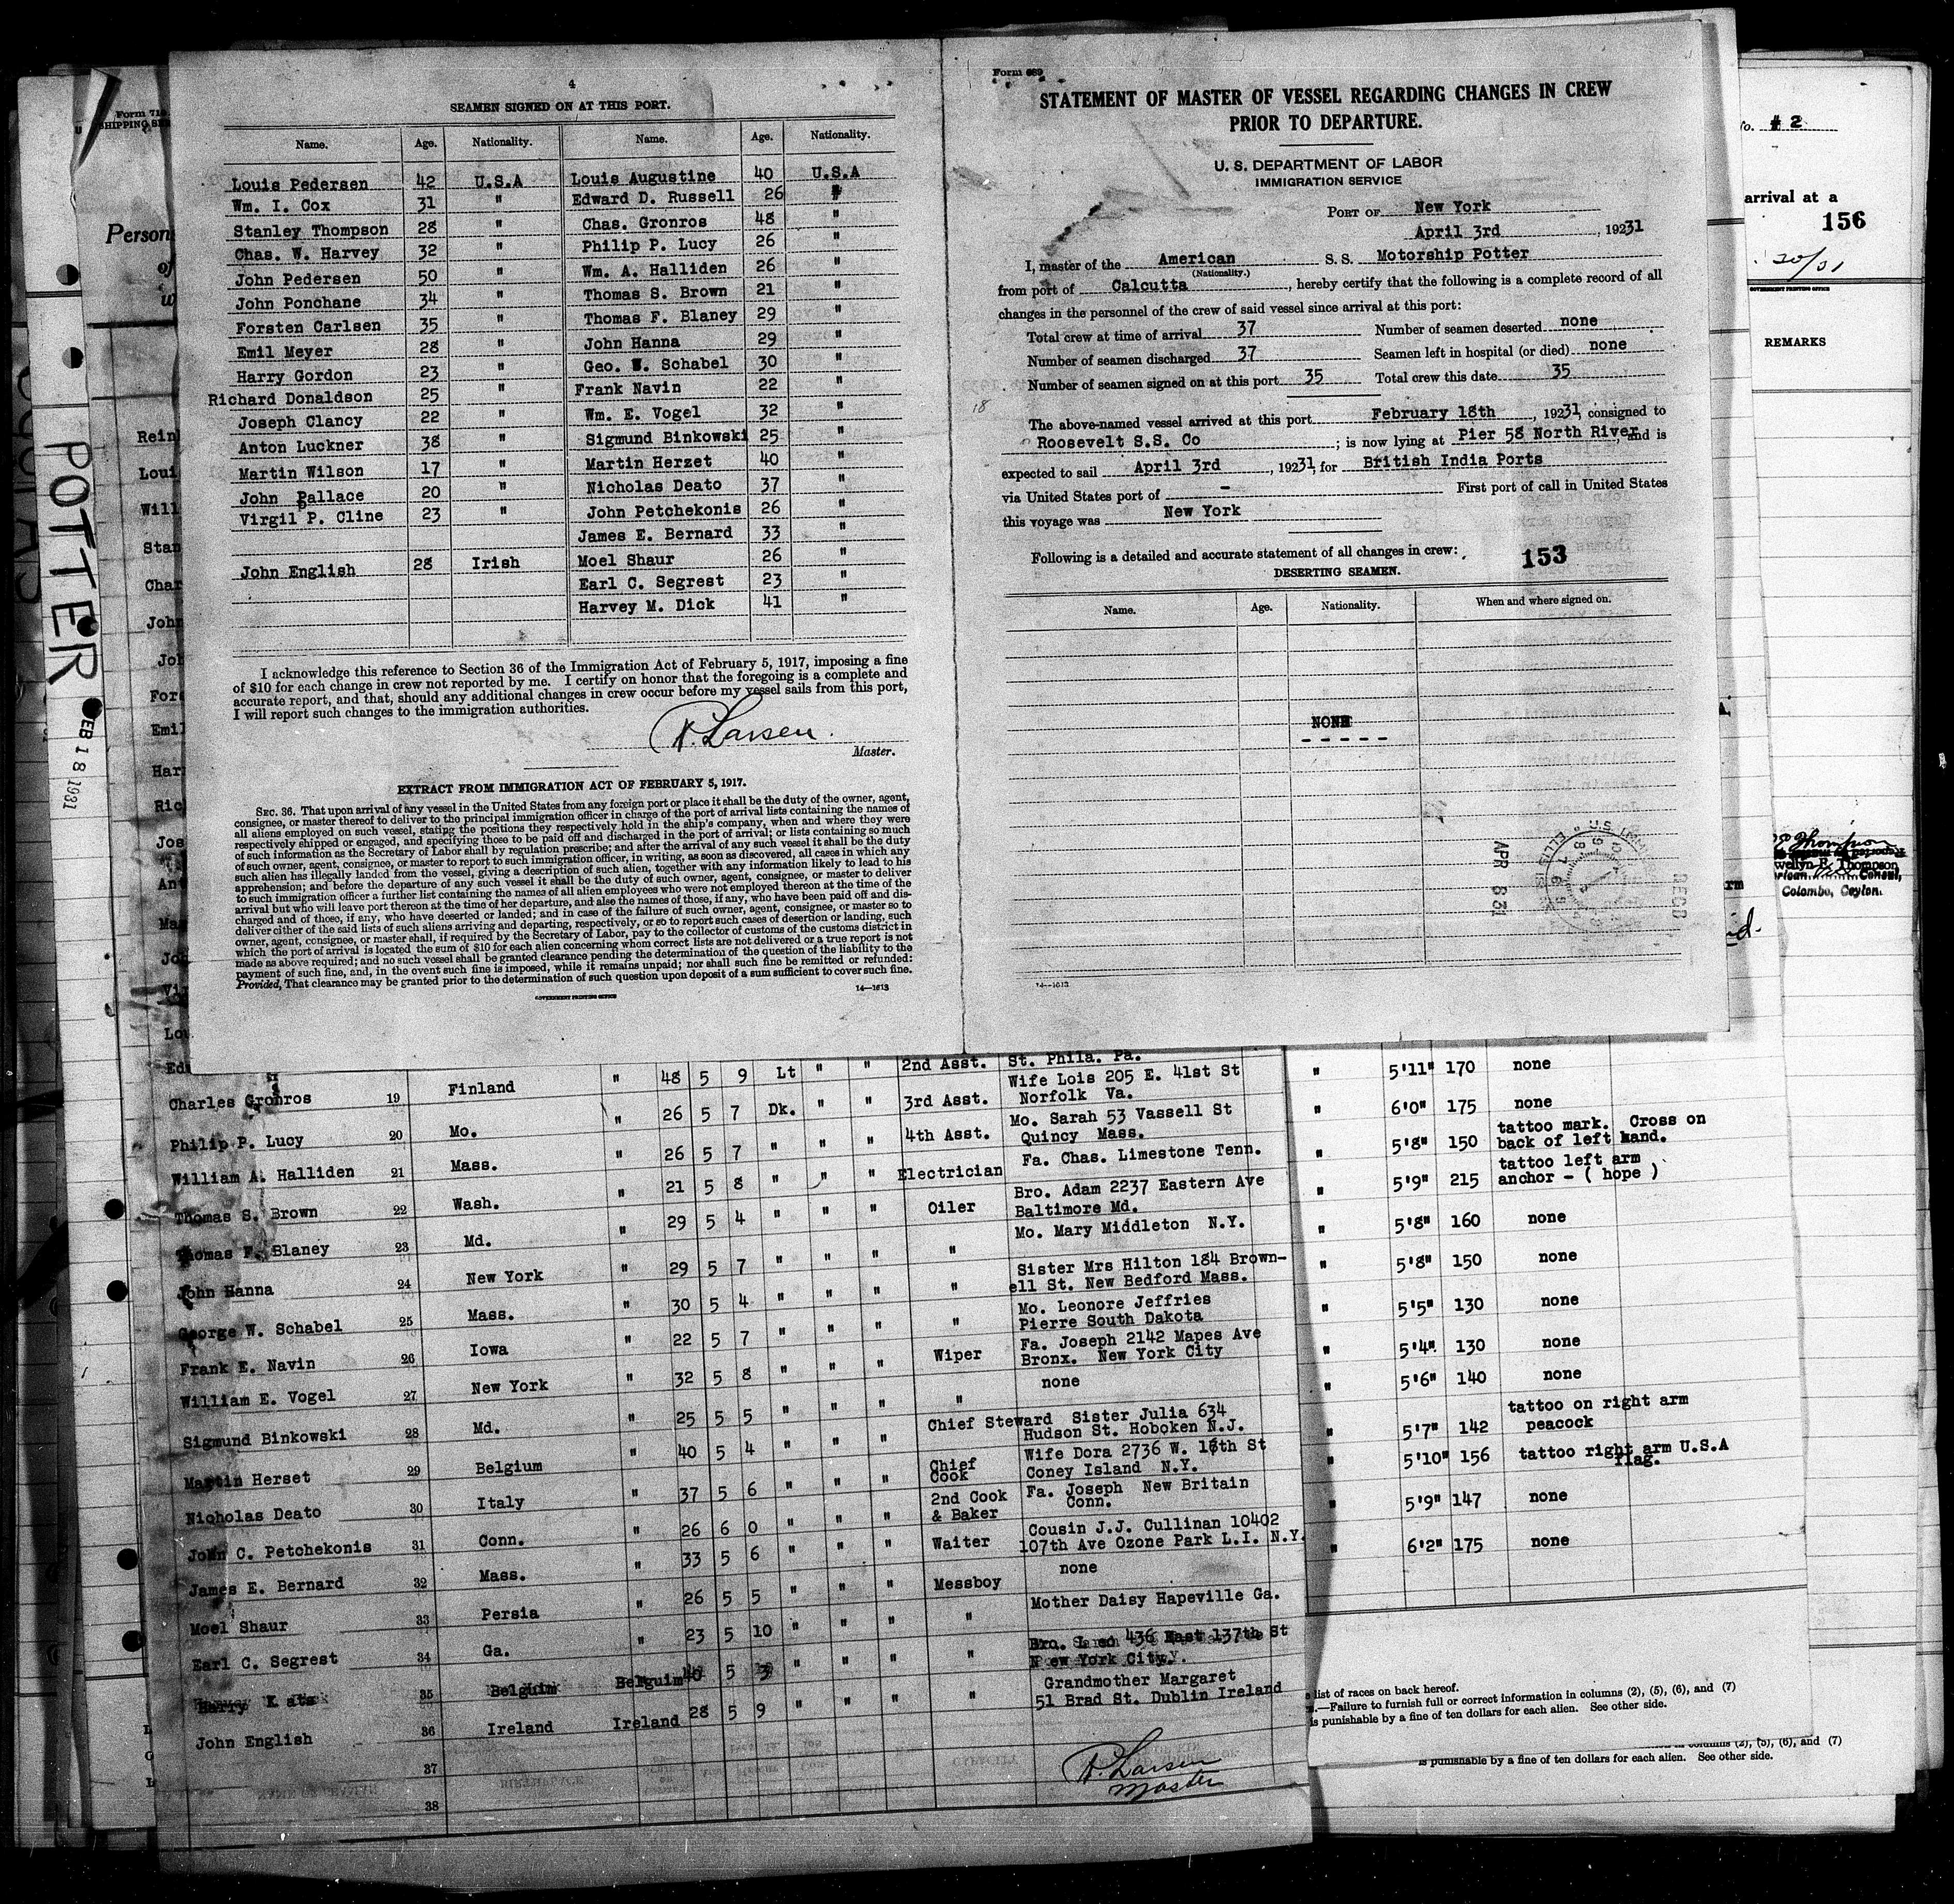 4
SEAMEN SIGNED ON AT THIS PORT.
Name. Age. Nationality. Name. Age. Nationality.
Louis Pedersen 42 U.S.A Louis Augustine 40 U.S.A
Wm. I. Cox 31 " Edward D. Russell 26 "
Stanley Thompson 28 " Chas. Gronros 48 "
Chas. W. Harvey 32 " Philip P. Lucy 26 "
John Pedersen 50 " Wm. A. Halliden 26 "
John Ponchane 34 " Thomas S. Brown 21 "
Forsten Carlsen 35 " Thomas F. Blaney 29 "
Emil Meyer 28 " John Hanna 29 "
Harry Gordon 23 " Geo. W. Schabel 30 "
Richard Donaldson 25 " Frank Navin 22 "
Joseph Clancy 22 " Wm. E. Vogel 32 "
Anton Luckner 38 " Sigmund Binkowski 25 "
Martin Wilson 17 " Martin Herzet 40 "
John Pallace 20 " Nicholas Deato 37 "
Virgil P. Cline 23 " John Petchekonis 26 "
James E. Bernard 33 "
John English 28 Irish Moel Shaur 26 "
Earl C. Segrest 23 "
Harvey M. Dick 41 "
I acknowledge this reference to Section 36 of the Immigration Act of February 5, 1917, imposing a fine
of $10 for each change in crew not reported by me. I certify on honor that the foregoing is a complete and
accurate report, and that, should any additional changes in crew occur before my vessel sails from this port,
I will report such changes to the immigration authorities.
K. Larsen.
Master.
EXTRACT FROM IMMIGRATION ACT OF FEBRUARY 5, 1917.
SEC. 36. That upon arrival of any vessel in the United States from any foreign port or place it shall be the duty of the owner, agent,
consignee, or master thereof to deliver to the principal immigration officer in charge of the port of arrival lists containing the names of
all aliens employed on such vessel, stating the positions they respectively hold in the ship's company, when and where they were
respectively shipped or engaged, and specifying those to be paid off and discharged in the port of arrival; or lists containing so much
of such information as the Secretary of Labor shall by regulation prescribe; and after the arrival of any such vessel it shall be the duty
of such owner, agent, consignee, or master to report to such immigration officer, in writing, as soon as discovered, all cases in which any
such alien has illegally landed from the vessel, giving a description of such alien, together with any information likely to lead to his
apprehension; and before the departure of any such vessel it shall be the duty of such owner, agent, consignee, or master to deliver
to such immigration officer a further list containing the names of all alien employees who were not employed thereon at the time of the
arrival but who will leave port thereon at the time of her departure, and also the names of those, if any, who have been paid off and dis-
charged and of those, if any, who have deserted or landed; and in case of the failure of such owner, agent, consignee, or master so to
deliver either of the said lists of such aliens arriving and departing, respectively, or so to report such cases of desertion or landing, such
owner, agent, consignee, or master shall, if required by the Secretary of Labor, pay to the collector of customs of the customs district in
which the port of arrival is located the sum of $10 for each alien concerning whom correct lists are not delivered or a true report is not
made as above required; and no such vessel shall be granted clearance pending the determination of the question of the liability to the
payment of such fine, and, in the event such fine is imposed, while it remains unpaid; nor shall such fine be remitted or refunded:
Provided, That clearance may be granted prior to the determination of such question upon deposit of a sum sufficient to cover such fine.
GOVERNMENT PRINTING OFFICE
14—1613
Form 689
STATEMENT OF MASTER OF VESSEL REGARDING CHANGES IN CREW
PRIOR TO DEPARTURE.
U. S. DEPARTMENT OF LABOR
IMMIGRATION SERVICE
PORT OF New York
April 3rd, 19231
I, master of the American S. S. Motorship Potter
(Nationality.)
from port of Calcutta, hereby certify that the following is a complete record of all
changes in the personnel of the crew of said vessel since arrival at this port:
Total crew at time of arrival 37 Number of seamen deserted none
Number of seamen discharged 37 Seamen left in hospital (or died) none
Number of seamen signed on at this port 35 Total crew this date 35
18
The above-named vessel arrived at this port February 18th, 19231, consigned to
Roosevelt S.S. Co; is now lying at Pier 58 North River and is
expected to sail April 3rd, 19231, for British India Ports
via United States port of - First port of call in United States
this voyage was New York
Following is a detailed and accurate statement of all changes in crew:
153
DESERTING SEAMEN.
Name. Age. Nationality. When and where signed on.
NONE
- - - - - -
APR 3 31
RECD
14—1613
No. # 2
arrival at a
156
20/31
GOVERNMENT PRINTING OFFICE
REMARKS
Thompson
Thompson
Consul,
Colombo, Ceylon.
Form 710
Person
POTTER
FEB 18 1931
2nd Asst. St. Phila. Pa.
Charles Gronros 19 Finland " 48 5 9 Lt " " 3rd Asst. Wife Lois 205 E. 41st St Norfolk Va. " 5'11" 170 none
Philip P. Lucy 20 Mo. " 26 5 7 Dk. " " 4th Asst. Mo. Sarah 53 Vassell St Quincy Mass. " 6'0" 175 none
William A. Halliden 21 Mass. " 26 5 7 " " " Electrician Fa. Chas. Limestone Tenn. " 5'8" 150 tattoo mark. Cross on back of left hand.
Thomas S. Brown 22 Wash. " 21 5 8 " " " Oiler Bro. Adam 2237 Eastern Ave Baltimore Md. " 5'9" 215 tattoo left arm anchor - ( hope )
Thomas F. Blaney 23 Md. " 29 5 4 " " " " Mo. Mary Middleton N.Y. " 5'8" 160 none
John Hanna 24 New York " 29 5 7 " " " " Sister Mrs Hilton 184 Brown-ell St. New Bedford Mass. " 5'8" 150 none
George W. Schabel 25 Mass. " 30 5 4 " " " " Mo. Leonore Jeffries Pierre South Dakota " 5'5" 130 none
Frank E. Navin 26 Iowa " 22 5 7 " " " Wiper Fa. Joseph 2142 Mapes Ave Bronx. New York City " 5'4". 130 none
William E. Vogel 27 New York " 32 5 8 " " " " none " 5'6" 140 none
Sigmund Binkowski 28 Md. " 25 5 5 " " " Chief Steward Sister Julia 634 Hudson St. Hoboken N.J. " 5'7" 142 tattoo on right arm peacock
Martin Herset 29 Belgium " 40 5 4 " " " Chief Cook Wife Dora 2736 W. 18th St Coney Island N.Y. " 5'10" 156 tattoo right arm U.S.A flag.
Nicholas Deato 30 Italy " 37 5 6 " " " 2nd Cook & Baker Fa. Joseph New Britain Conn. " 5'9" 147 none
John C. Petchekonis 31 Conn. " 26 6 0 " " " Waiter Cousin J.J. Cullinan 10402 107th Ave Ozone Park L.I. N.Y. " 6'2" 175 none
James E. Bernard 32 Mass. " 33 5 6 " " " Messboy none
Moel Shaur 33 Persia " 26 5 5 " " " " Mother Daisy Hapeville Ga.
Earl C. Segrest 34 Ga. " 23 5 10 " " " " Bro. 436 East 137th St New York City.
Harry 35 Belguim Belguim 40 5 3 " " " " Grandmother Margaret 51 Brad St. Dublin Ireland
John English 36 Ireland Ireland 28 5 9
37
38
K. Larsen
Master
list of races on back hereof.
—Failure to furnish full or correct information in columns (2), (5), (6), and (7)
is punishable by a fine of ten dollars for each alien. See other side.
columns (2), (5), (6), and (7)
is punishable by a fine of ten dollars for each alien. See other side.